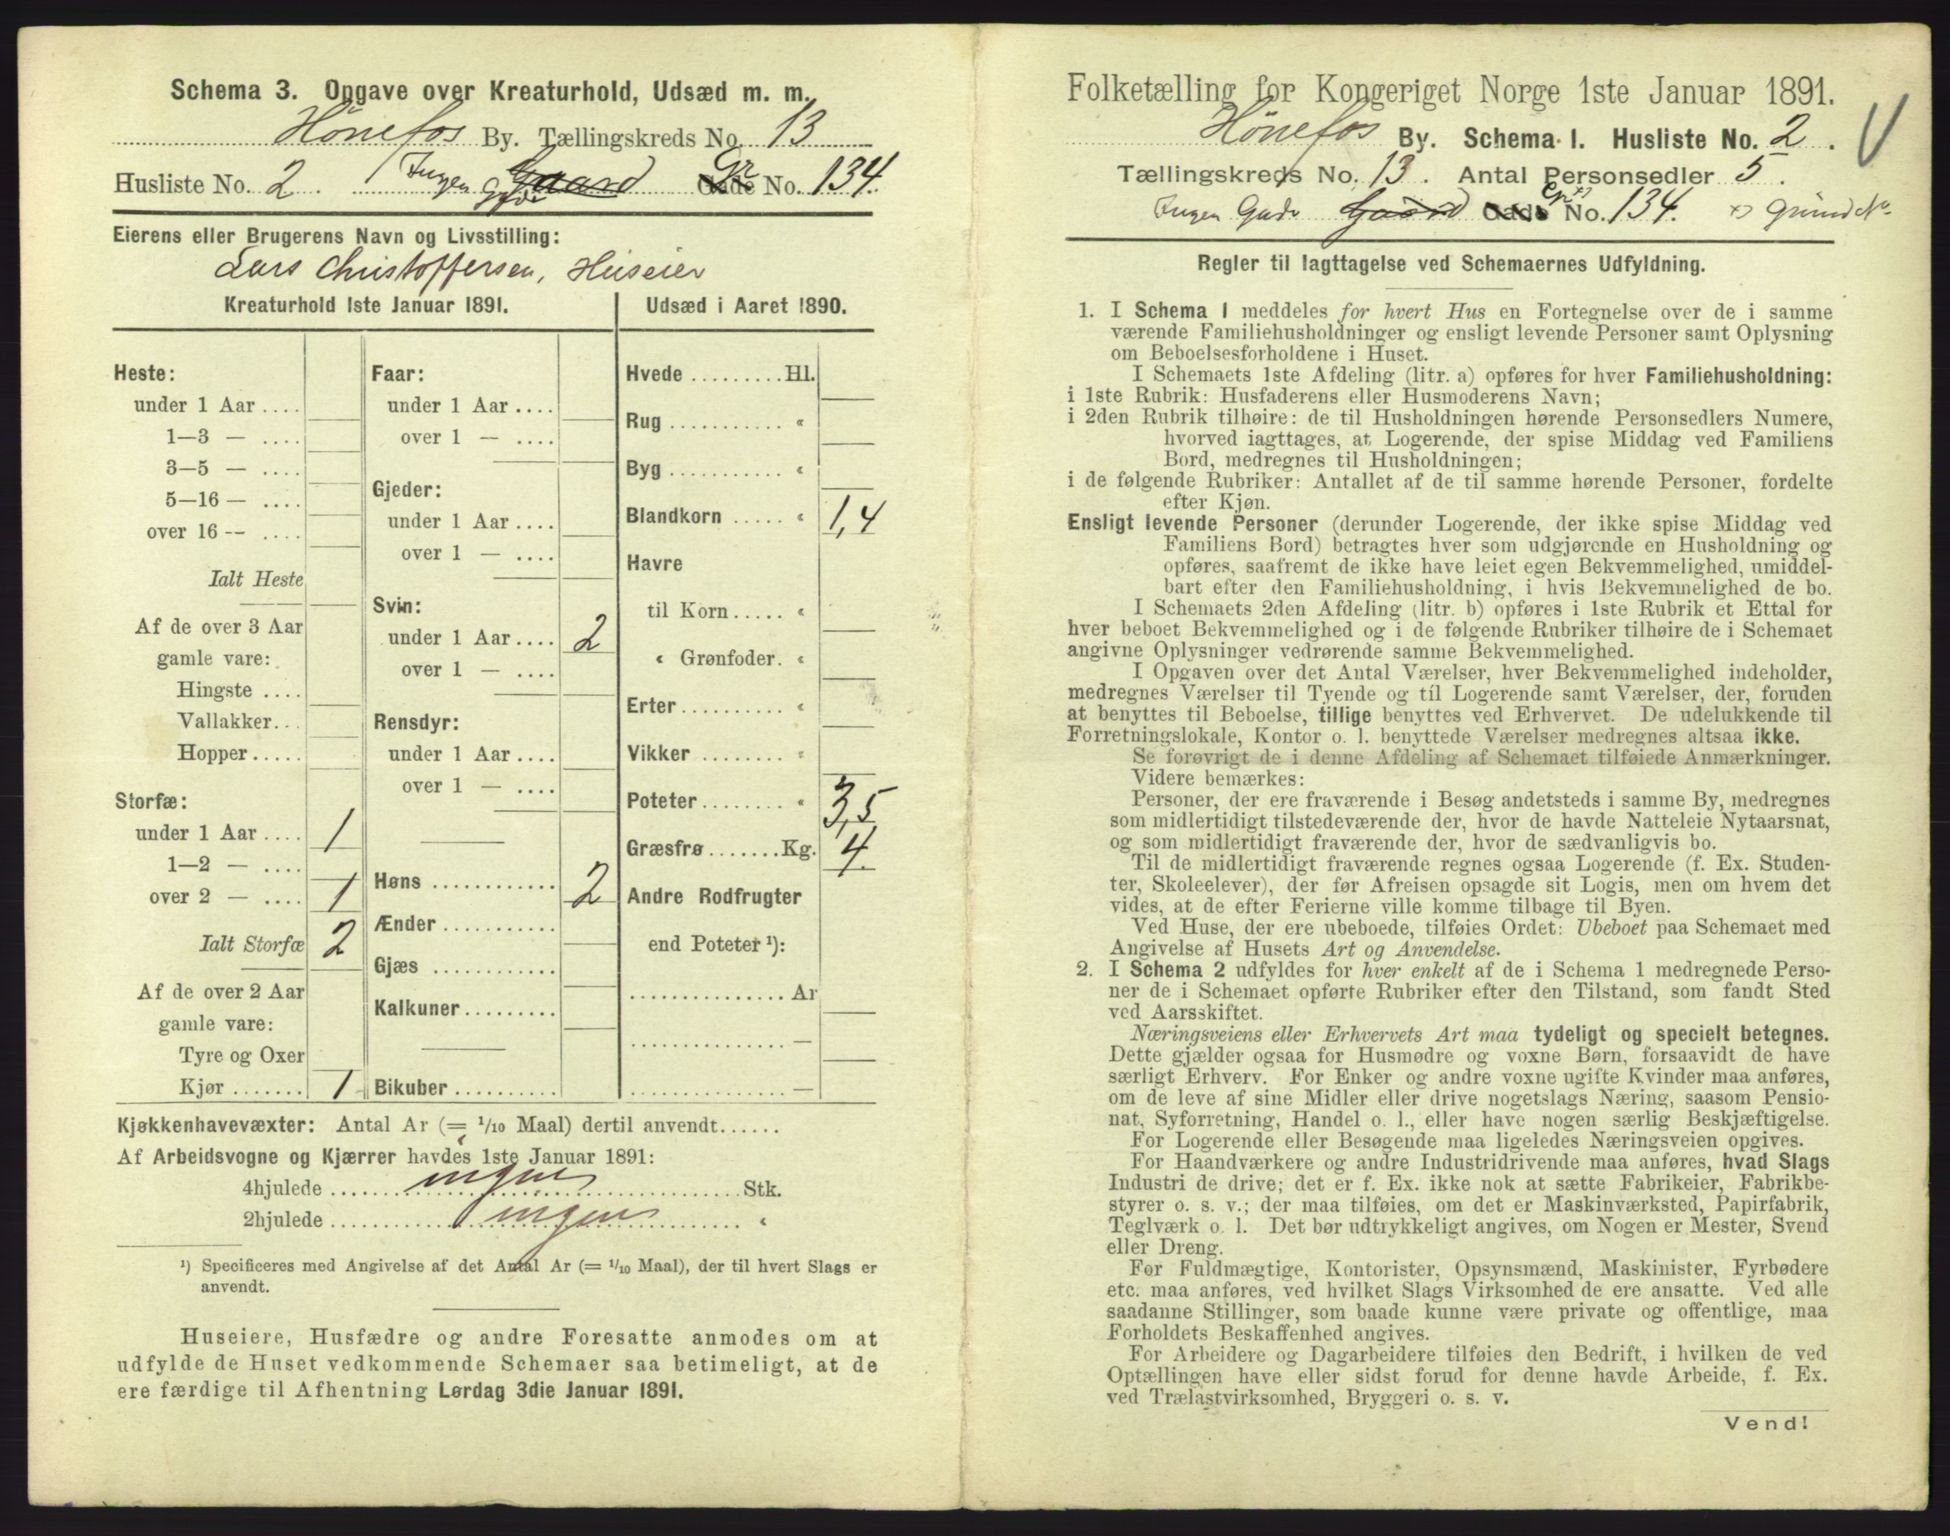 Schema 3. Opgave over Kreaturhold, Udsæd m. m.
Hønefos By. Tællingskreds No. 13
Husliste No. 2 Ingen Gade Gaard Gade Gr No. 134.
Eierens eller Brugerens Navn og Livsstilling:
Lars Christoffersen, Huseier
Kreaturhold 1ste Januar 1891.
Heste:
under 1 Aar ....
1—3 — ....
3—5 — ....
5—16 — ....
over 16 -- ....
Ialt Heste
Af de over 3 Aar
gamle vare:
Hingste ....
Vallakker...
Hopper.....
Storfæ:
under 1 Aar .... 1
1—2 — ....
over 2 — .... 1
Ialt Storfæ 2
Af de over 2 Aar
gamle vare:
Tyre og Oxer
Kjør ....... 1
Faar:
under 1 Aar ....
over 1 — ....
Gjeder:
under 1 Aar ....
over 1 — ....
Svin:
under 1 Aar .... 2
over 1 — ....
Rensdyr:
under 1 Aar ....
over 1 — ....
Høns ............ 2
Ænder ............
Gjæs ............
Kalkuner.........
Bikuber ..........
Udsæd i Aaret 1890.
Hvede ......... Hl.
Rug ........... «
Byg ........... «
Blandkorn ..... « 1,4
Havre
til Korn ..... «
« Grønfoder. «
Erter .......... «
Vikker ........ «
Poteter ........ « 3,5
Græsfrø ....... Kg. 4.
Andre Rodfrugter
end Poteter ¹):
............... Ar
............... —
............... —
Kjøkkenhavevæxter: Antal Ar (= 1/10 Maal) dertil anvendt......
Af Arbeidsvogne og Kjærrer havdes 1ste Januar 1891:
4hjulede ........ ingen ........ Stk.
2hjulede ........ ingen ........ «
¹) Specificeres med Angivelse af det Antal Ar (= 1/10 Maal), der til hvert Slags er
anvendt.
Huseiere, Husfædre og andre Foresatte anmodes om at
udfylde de Huset vedkommende Schemaer saa betimeligt, at de
ere færdige til Afhentning Lørdag 3die Januar 1891.
Folketælling for Kongeriget Norge 1ste Januar 1891.
Hønefos By. Schema 1. Husliste No. 2.
Tællingskreds No. 13. Antal Personsedler 5.
Ingen Gade Gaard Gade Gr x) No. 134. x) Grund No.
Regler til Iagttagelse ved Schemaernes Udfyldning.
1. I Schema 1 meddeles for hvert Hus en Fortegnelse over de i samme
værende Familiehusholdninger og ensligt levende Personer samt Oplysning
om Beboelsesforholdene i Huset.
I Schemaets 1ste Afdeling (litr. a) opføres for hver Familiehusholdning:
i 1ste Rubrik: Husfaderens eller Husmoderens Navn;
i 2den Rubrik tilhøire: de til Husholdningen hørende Personsedlers Numere,
hvorved iagttages, at Logerende, der spise Middag ved Familiens
Bord, medregnes til Husholdningen;
i de følgende Rubriker: Antallet af de til samme hørende Personer, fordelte
efter Kjøn.
Ensligt levende Personer (derunder Logerende, der ikke spise Middag ved
Familiens Bord) betragtes hver som udgjørende en Husholdning og
opføres, saafremt de ikke have leiet egen Bekvemmelighed, umiddel-
bart efter den Familiehusholdning, i hvis Bekvemmelighed de bo.
I Schemaets 2den Afdeling (litr. b) opføres i 1ste Rubrik et Ettal for
hver beboet Bekvemmelighed og i de følgende Rubriker tilhøire de i Schemaet
angivne Oplysninger vedrørende samme Bekvemmelighed.
I Opgaven over det Antal Værelser, hver Bekvemmelighed indeholder,
medregnes Værelser til Tyende og til Logerende samt Værelser, der, foruden
at benyttes til Beboelse, tillige benyttes ved Erhvervet. De udelukkende til
Forretningslokale, Kontor o. l. benyttede Værelser medregnes altsaa ikke.
Se forøvrigt de i denne Afdeling af Schemaet tilføiede Anmærkninger.
Videre bemærkes:
Personer, der ere fraværende i Besøg andetsteds i samme By, medregnes
som midlertidigt tilstedeværende der, hvor de havde Natteleie Nytaarsnat,
og som midlertidigt fraværende der, hvor de sædvanligvis bo.
Til de midlertidigt fraværende regnes ogsaa Logerende (f. Ex. Studen-
ter, Skoleelever), der før Afreisen opsagde sit Logis, men om hvem det
vides, at de efter Ferierne ville komme tilbage til Byen.
Ved Huse, der ere ubeboede, tilføies Ordet: Ubeboet paa Schemaet med
Angivelse af Husets Art og Anvendelse.
2. I Schema 2 udfyldes for hver enkelt af de i Schema 1 medregnede Perso-
ner de i Schemaet opførte Rubriker efter den Tilstand, som fandt Sted
ved Aarsskiftet.
Næringsveiens eller Erhvervets Art maa tydeligt og specielt betegnes.
Dette gjælder ogsaa for Husmødre og voxne Børn, forsaavidt de have
særligt Erhverv. For Enker og andre voxne ugifte Kvinder maa anføres,
om de leve af sine Midler eller drive nogetslags Næring, saasom Pensio-
nat, Syforretning, Handel o. l., eller have nogen særlig Beskjæftigelse.
For Logerende eller Besøgende maa ligeledes Næringsveien opgives.
For Haandværkere og andre Industridrivende maa anføres, hvad Slags
Industri de drive; det er f. Ex. ikke nok at sætte Fabrikeier, Fabrikbe-
styrer o. s. v.; der maa tilføies, om det er Maskinværksted, Papirfabrik,
Teglværk o. l. Det bør udtrykkeligt angives, om Nogen er Mester, Svend
eller Dreng.
For Fuldmægtige, Kontorister, Opsynsmænd, Maskinister, Fyrbødere
etc. maa anføres, ved hvilket Slags Virksomhed de ere ansatte. Ved alle
saadanne Stillinger, som baade kunne være private og offentlige, maa
Forholdets Beskaffenhed angives.
For Arbeidere og Dagarbeidere tilføies den Bedrift, i hvilken de ved
Optællingen have eller sidst forud for denne havde Arbeide, f. Ex.
ved Trælastvirksomhed, Bryggeri o. s. v.
Vend!